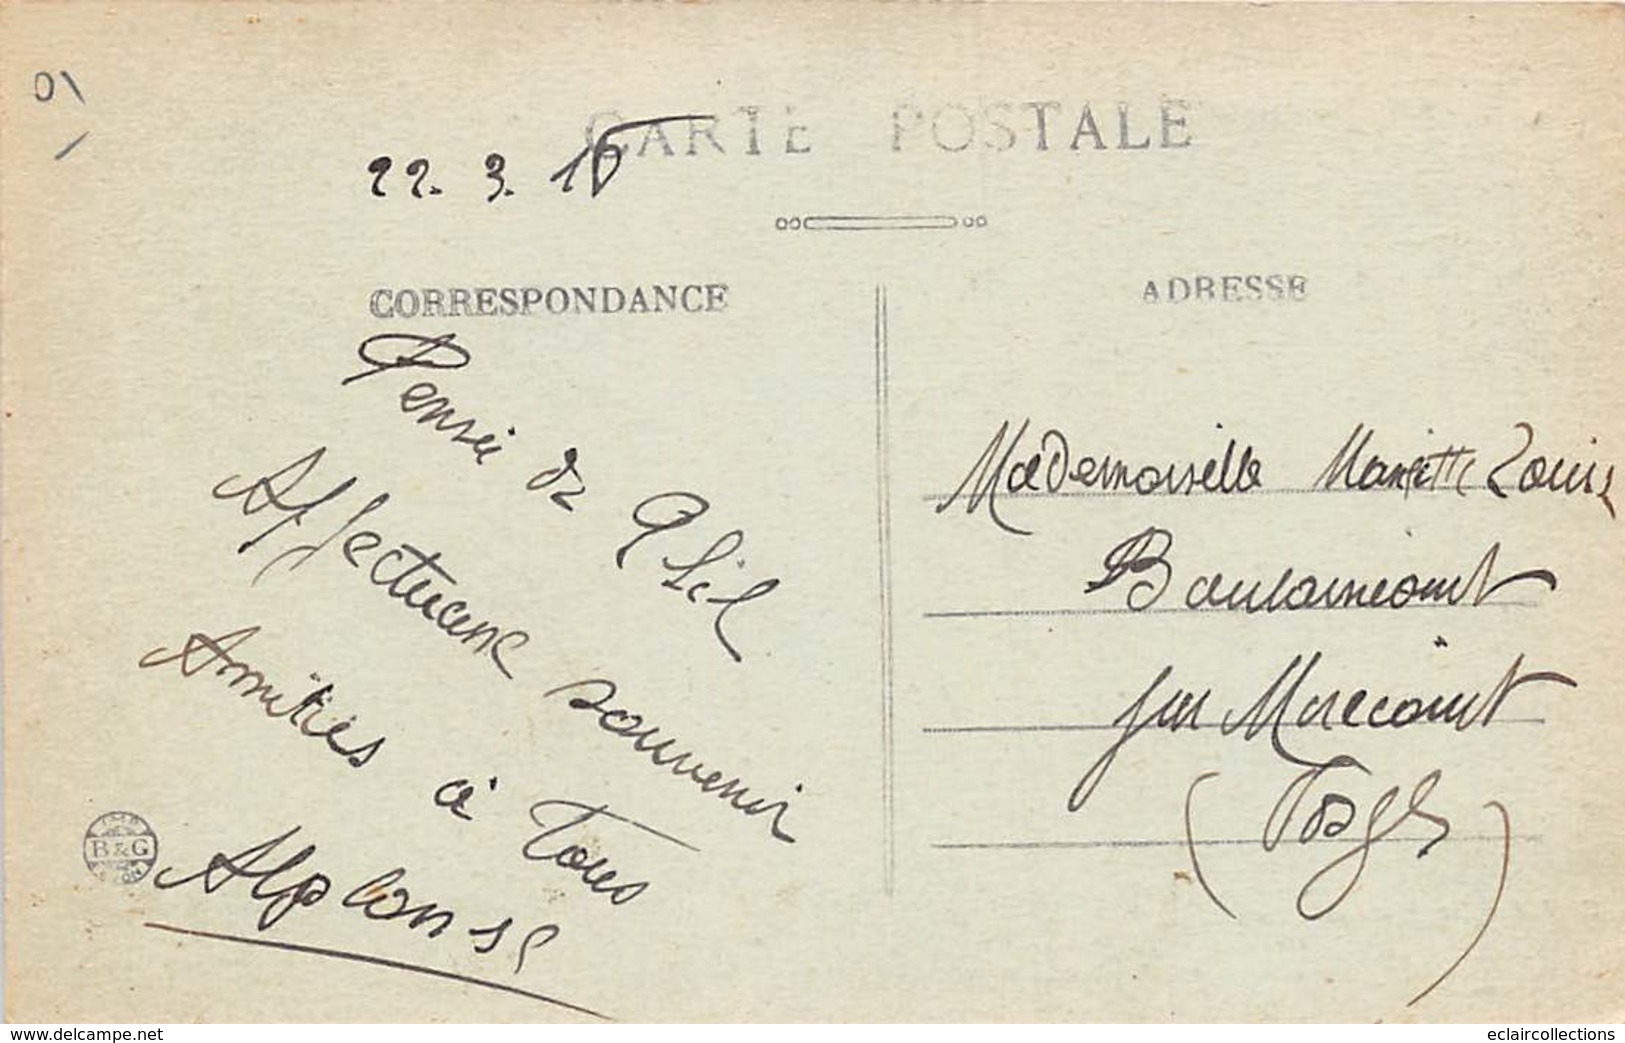 CARTE POSTALE
22. 3. 15
CORRESPONDANCE
Pensée de
Affectueuse souvenir
Amitiés à Tous
Alphonse
ADRESSE
Mademoiselle Mariette Louis
Baulaincourt
par Mirecourt
(Vosges)
B&G
www.delcampe.net
eclaircollections